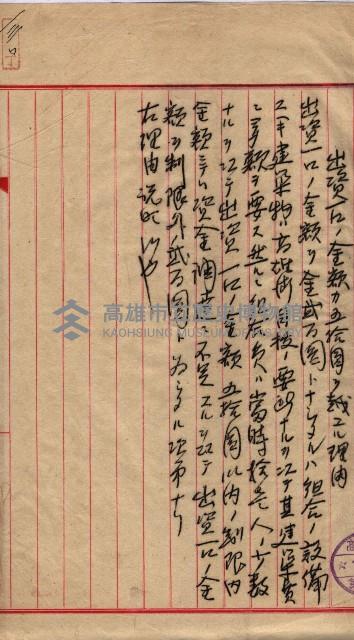 出資一口ノ金額カ五拾圓ヲ越エル理由
出資一口ノ金額ヲ金貳百圓トナシタルハ組合ノ設備
スヘキ建築物ハ高雄街
目抜ノ要所ナルヲ以テ其建築費
ニ多額ヲ要ス然ルニ組合員ハ當時拾五人ノ少數
ナルヲ以テ出資一口ノ金額五拾圓以内ノ制限内
金額ニテハ資金調達
不足スルヲ以テ出資一口ノ金
額ヲ制限外ノ貳百圓ト為シタル次第ナリ
右理由說明
候也
高雄市立歷史博物館
KAOHSIUNG MUSEUM OF HISTORY